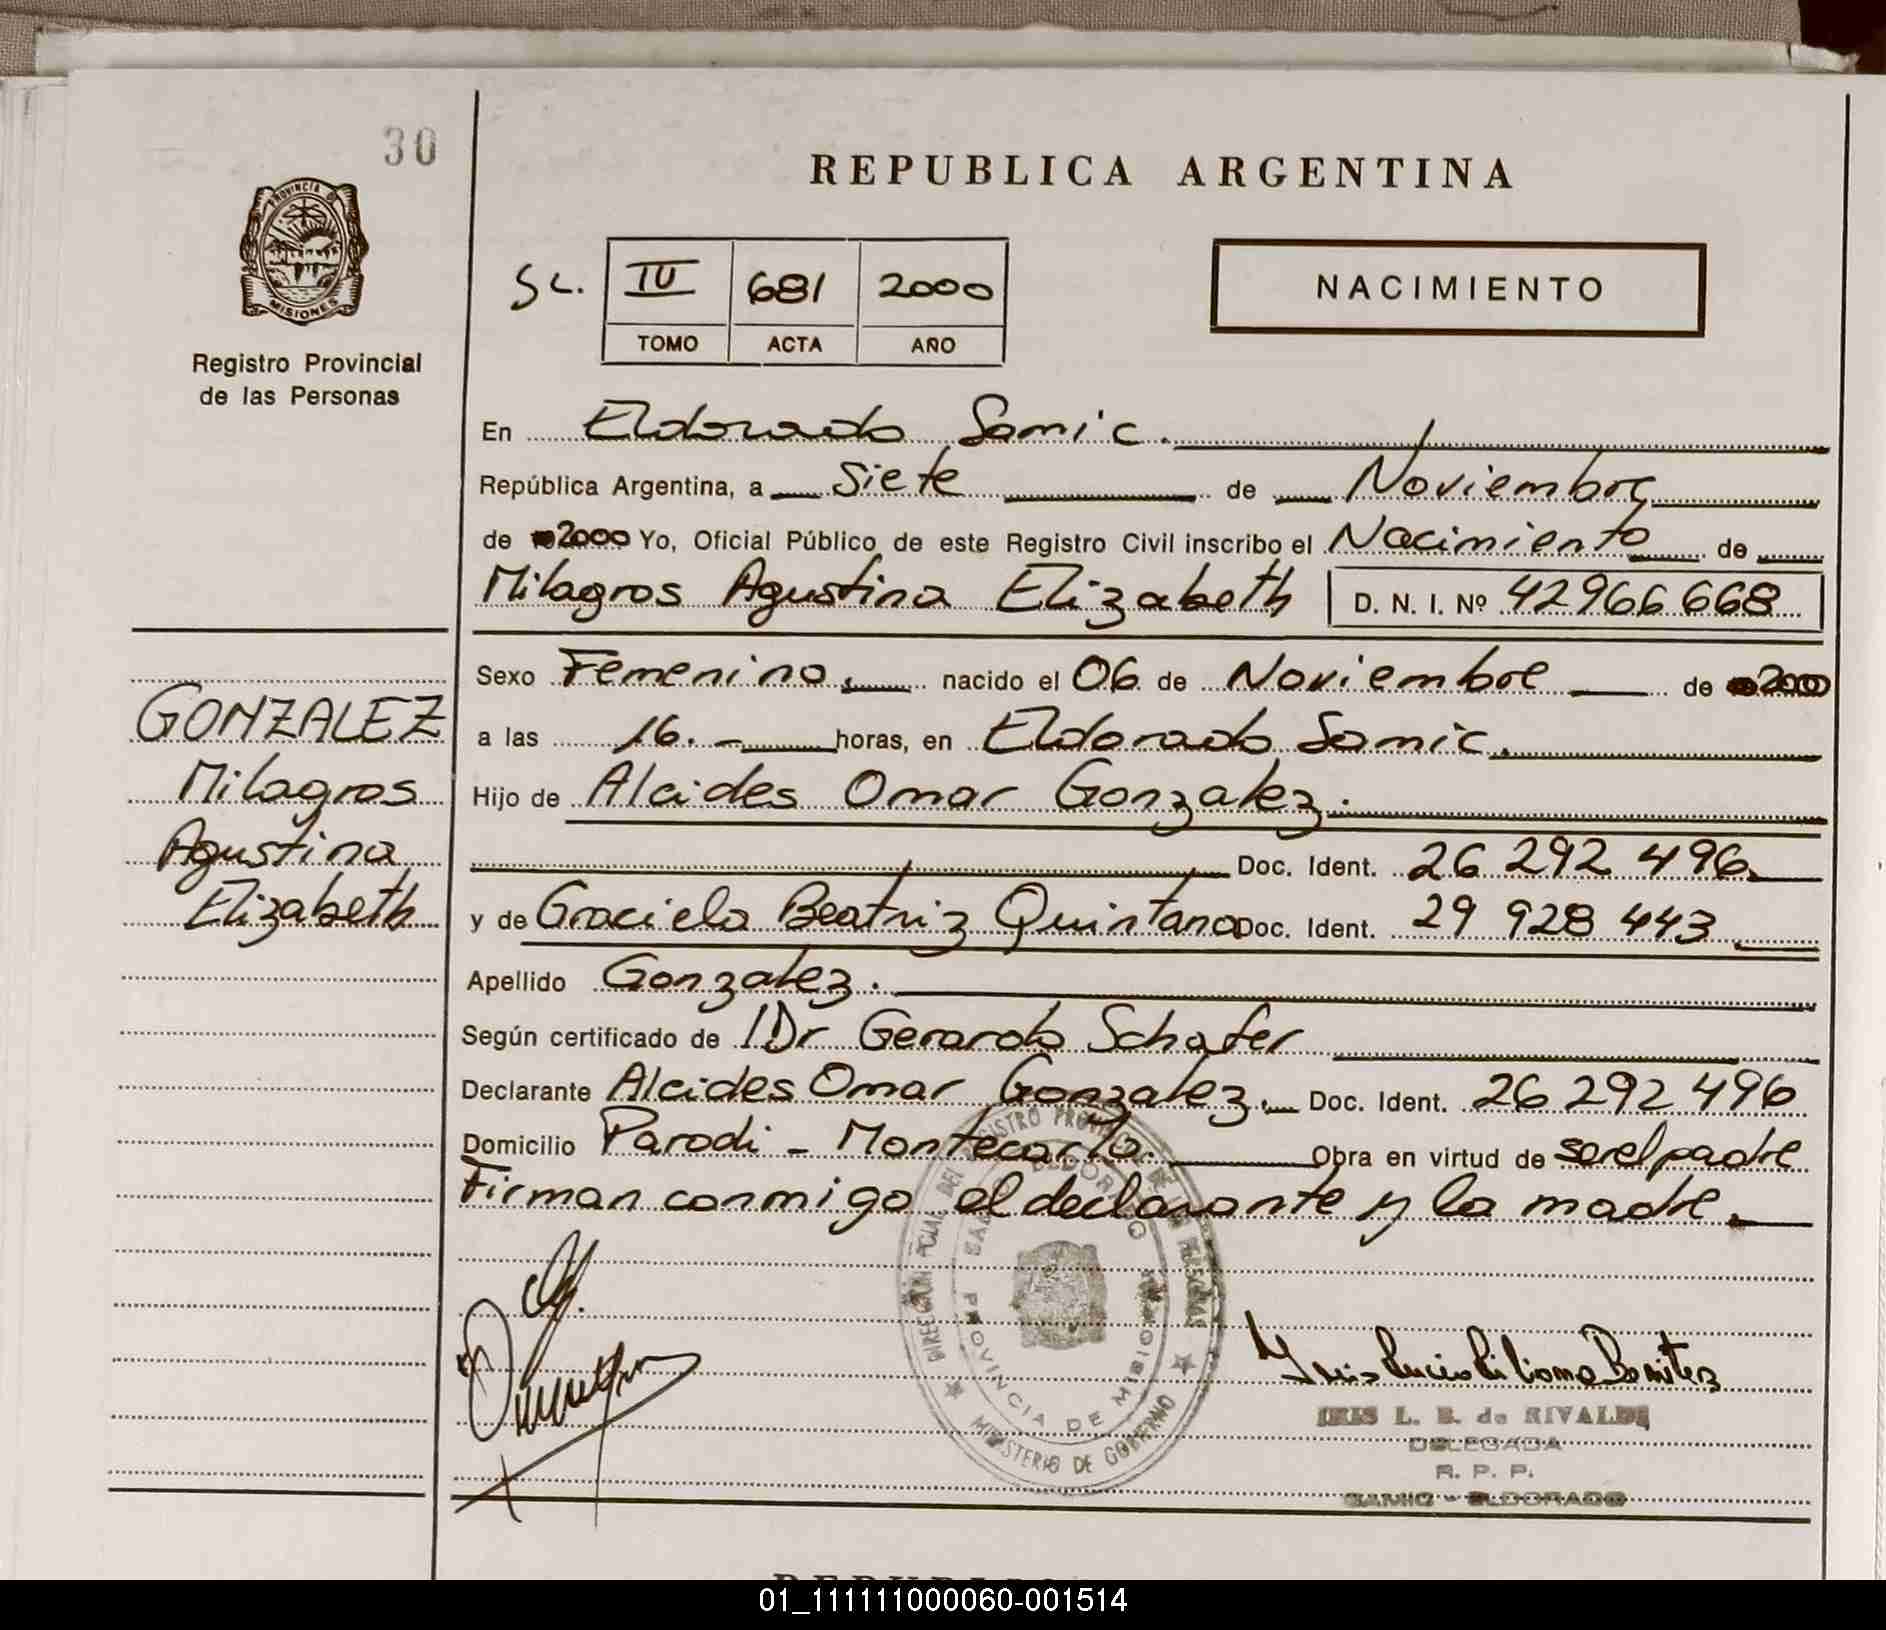 30
REPUBLICA ARGENTINA
PROVINCIA DE
MISIONES
Registro Provincial
de las Personas
SC. IV 681 2000
TOMO ACTA AÑO
NACIMIENTO
En Eldorado Samic.
República Argentina, a Siete de Noviembre
de 2000 Yo, Oficial Público de este Registro Civil inscribo el Nacimiento de
Milagros Agustina Elizabeth D. N. I. Nº 42966668
Sexo Femenino. nacido el 06 de Noviembre de 2000
a las 16.- horas, en Eldorado Samic.
Hijo de Alcides Omar Gonzalez.
Doc. Ident. 26 292 496
y de Graciela Beatriz Quintana Doc. Ident. 29 928 443
Apellido Gonzalez.
Según certificado de Dr Gerardo Schafer
Declarante Alcides Omar Gonzalez. Doc. Ident. 26 292 496
Domicilio Parodi - Montecarlo. Obra en virtud de ser el padre
Firman conmigo el declarante y la madre.
GONZALEZ
Milagros
Agustina
Elizabeth
DIRECCIÓN PCIAL. DEL REGISTRO PROVINCIAL DE LAS PERSONAS
ELDORADO
PROVINCIA DE MISIONES
MINISTERIO DE GOBERNO
IRIS L. B. de RIVALDI
DELEGADA
R. P. P.
SAMIC - ELDORADO
01_111111000060-001514